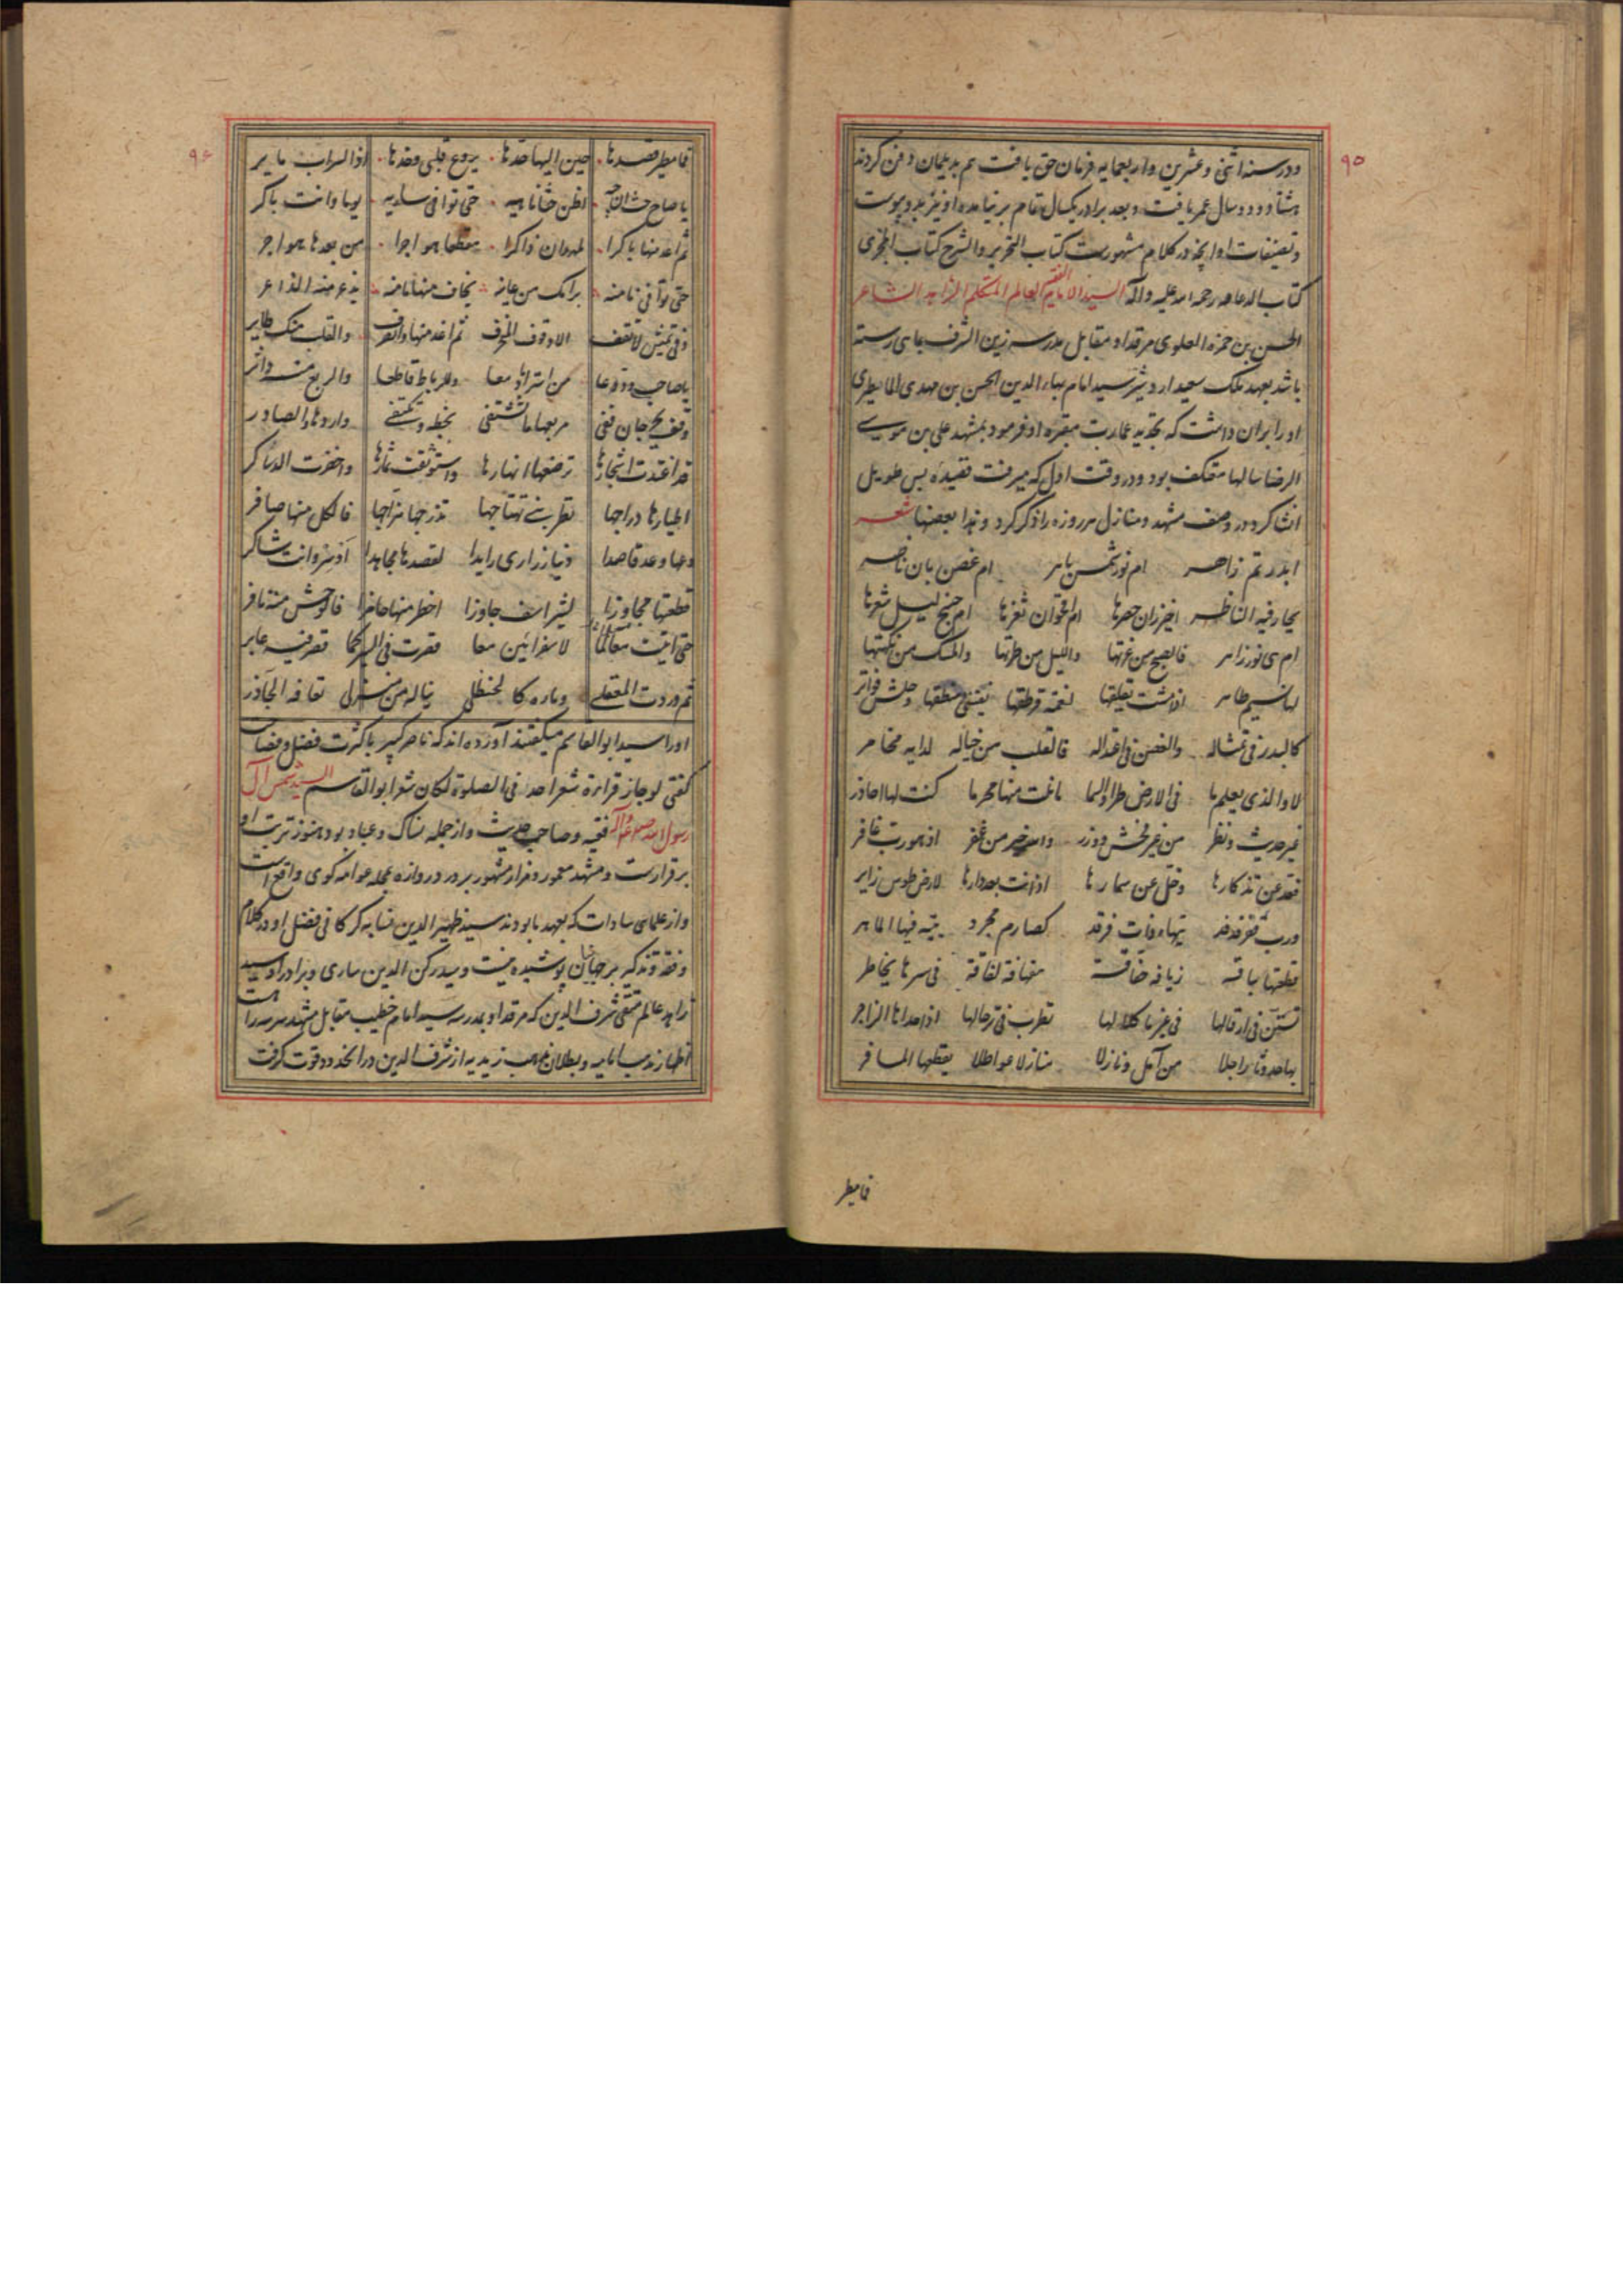 ۹۵
ودر سنه اثنی وعشرین واربعمایه فرمان حق یافت هم بدیلمان دفن کردند
هشتاد و دو سال عمر یافت وبعد برادر یکسال تمام بر نیامده او نیز بدو پیوست
وتصنیفات او آنچه در کلام مشهورست کتاب التحریر والشرح کتاب المجزی
کتاب الدعامه رحمة الله علیه وآله السید الامام الفقیه العالم المتکلم الزاهد الشاعر
الحسن بن حمزه العلوی مرقد او مقابل مدرسه زین الشرف بمای رسته
باشد بعهد ملک سعید اردشیر سید امام بهاء الدین الحسن بن مهدی المامطیری
او را بران داشت که تجدید عمارت مقبره او فرمود بمشهد علی بن موسی
الرضا سالها معتکف بود ودر وقت اول که میرفت قصیده بس طویل
انشا کرد در وصف مشهد ومنازل هر روزه را ذکر کرد وهذا بعضها شعر
ابدر تم زاهر ام نور شمس باهر ام غصن بان ناضر
یحار فیه الناظر اخیزران خصرها ام اقحوان ثغرها ام جنح لیل شعرها
ام هی نور زاهر فالصبح من غرتها واللیل من طرتها والمسک من نکهتها
لها نسیم طاهر اذا مشت تعلیقها لغمة قرطقها منطقها فواتر
کالبدر فی تمثاله والغصن فی اعتداله فالقلب من خیاله لدایه مخامر
لا والذی یعلم ما فی الارض طرا والسما ما نلت منها محرما کنت لها احاذر
غیر حدیث ونظر من غیر فحش ووزر والله خیر من غفر اذ هو رب غافر
فعد عن تذکارها وخل عن سمارها اذ انت بعد دارها لارض طوس زایر
ورب قفر فدفد یتهاء ذات فرقد کصارم مجرد یتیه فیها الماهر
قطعتها بناقة زیافة خفاقة فی سرها یخاطر
تستن فی ارقالها فی غیر ما کلالها تطرب فی ترحالها اذا حداها الزاجر
بها حدوثا راجلا من آمل ونازلا منازلا عواطلا یقطعها المسافر
فامیطر
۹۶
فامیطر قصدها حین الیها حدها یروع قلبی وخدها اذا السراب مایر
یا صاح حث اظن خثانا هیه حتی توافی ساریه یوما وانت باکر
ثم اغد منها باکرا لمهروان ذاکرا مقطعا هواجرا من بعدها هواجر
حتی توافی نامنه یخاف منها نامنه یذعر منه الذاعر
لا تقف الا وقوف المنحرف ثم اغد منها وانصرف والقلب منک طایر
یا صاحب ودعا من استراباد معا وللرباط فاطعا والربع منه داثر
وقف بجرجان ففی مربعها ما تشتفی بخطه وتکتفی واردها والصادر
قد اغتدت اشجارها ترضعها انهارها واستوثقت ثمارها واخضرت الدساکر
اطیارها دراجها تطربنی تهتاجها تذرجها فالکل منها صافر
دعها وعد قاصدا دنیازاری رایدا لقصدها مجاهدا اذ سر وانت شاکر
قطعتها مجاوزا لشیراسف جاوزا احظر منها حاظرا فالوحش منه نافر
حتی اتیت معالما لاسفرائین معا فقرت فی السیر کما تصرفه عابر
ثم وردت المعقلی وماؤه کالحنظل نیاله من منزل تعافه الجآذر
اورا سید ابو القاسم میگفتند آورده اند که ناصر کبیر با کثرت فضل وفصاحت
گفتی لو جاز قراءة شعر احد فی الصلوة لکان شعر ابو القاسم السید شمس آل
رسول الله فقیه وصاحب حدیث واز جمله نساک وعباد بود هنوز تربت او
برقرارست ومشهد معمور ومزار مشهور بر در دروازه بمحله عوامه کوی واقع است
واز علمای سادات که بعهد ما بودند سید ظهیر الدین نسابه گرگانی فضل او در کلام
وفقه وتذکیر بر جهانیان پوشیده نیست وسید رکن الدین ساری وبرادر او سید
زاهد عالم متقی شرف الدین که مرقد او بمدرسه سید امام خطیب مقابل مشهد سرسرا است
اظهار مذهب امامیه وبطلان مذهب زیدیه از شرف الدین در آن حدود قوت گرفت